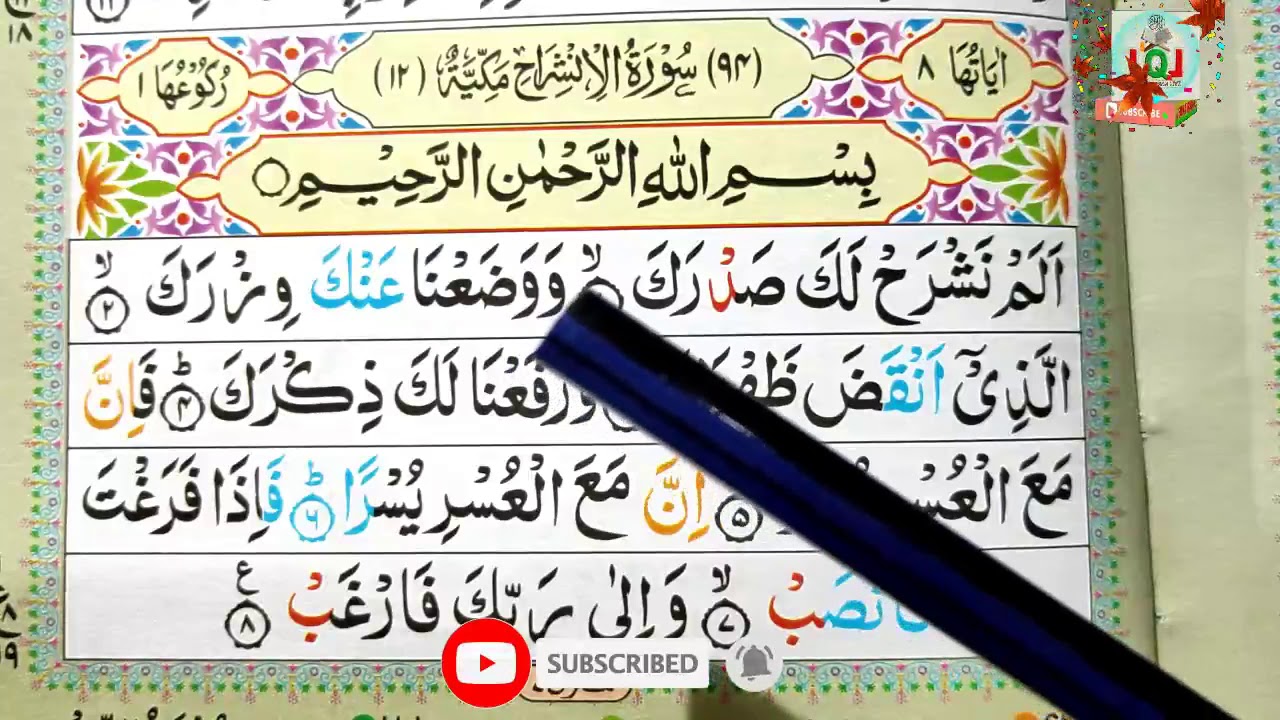 اٰيَاتُهَا ٨ (٩٤) سُوْرَةُ الْاِنْشِرَاحِ مَكِّيَّةٌ (١٢) رُكُوْعُهَا ١
بِسْمِ اللهِ الرَّحْمٰنِ الرَّحِيْمِ
اَلَمْ نَشْرَحْ لَكَ صَدْرَكَ ۙ وَوَضَعْنَا عَنْكَ وِزْرَكَ ۙ ٢
الَّذِىْٓ اَنْقَضَ وَرَفَعْنَا لَكَ ذِكْرَكَ ؕ ٤ فَاِنَّ
مَعَ الْعُسْرِ ٥ اِنَّ مَعَ الْعُسْرِ يُسْرًا ؕ ٦ فَاِذَا فَرَغْتَ
فَانْصَبْ ۙ ٧ وَاِلٰى رَبِّكَ فَارْغَبْ ٨ ع
SUBSCRIBED